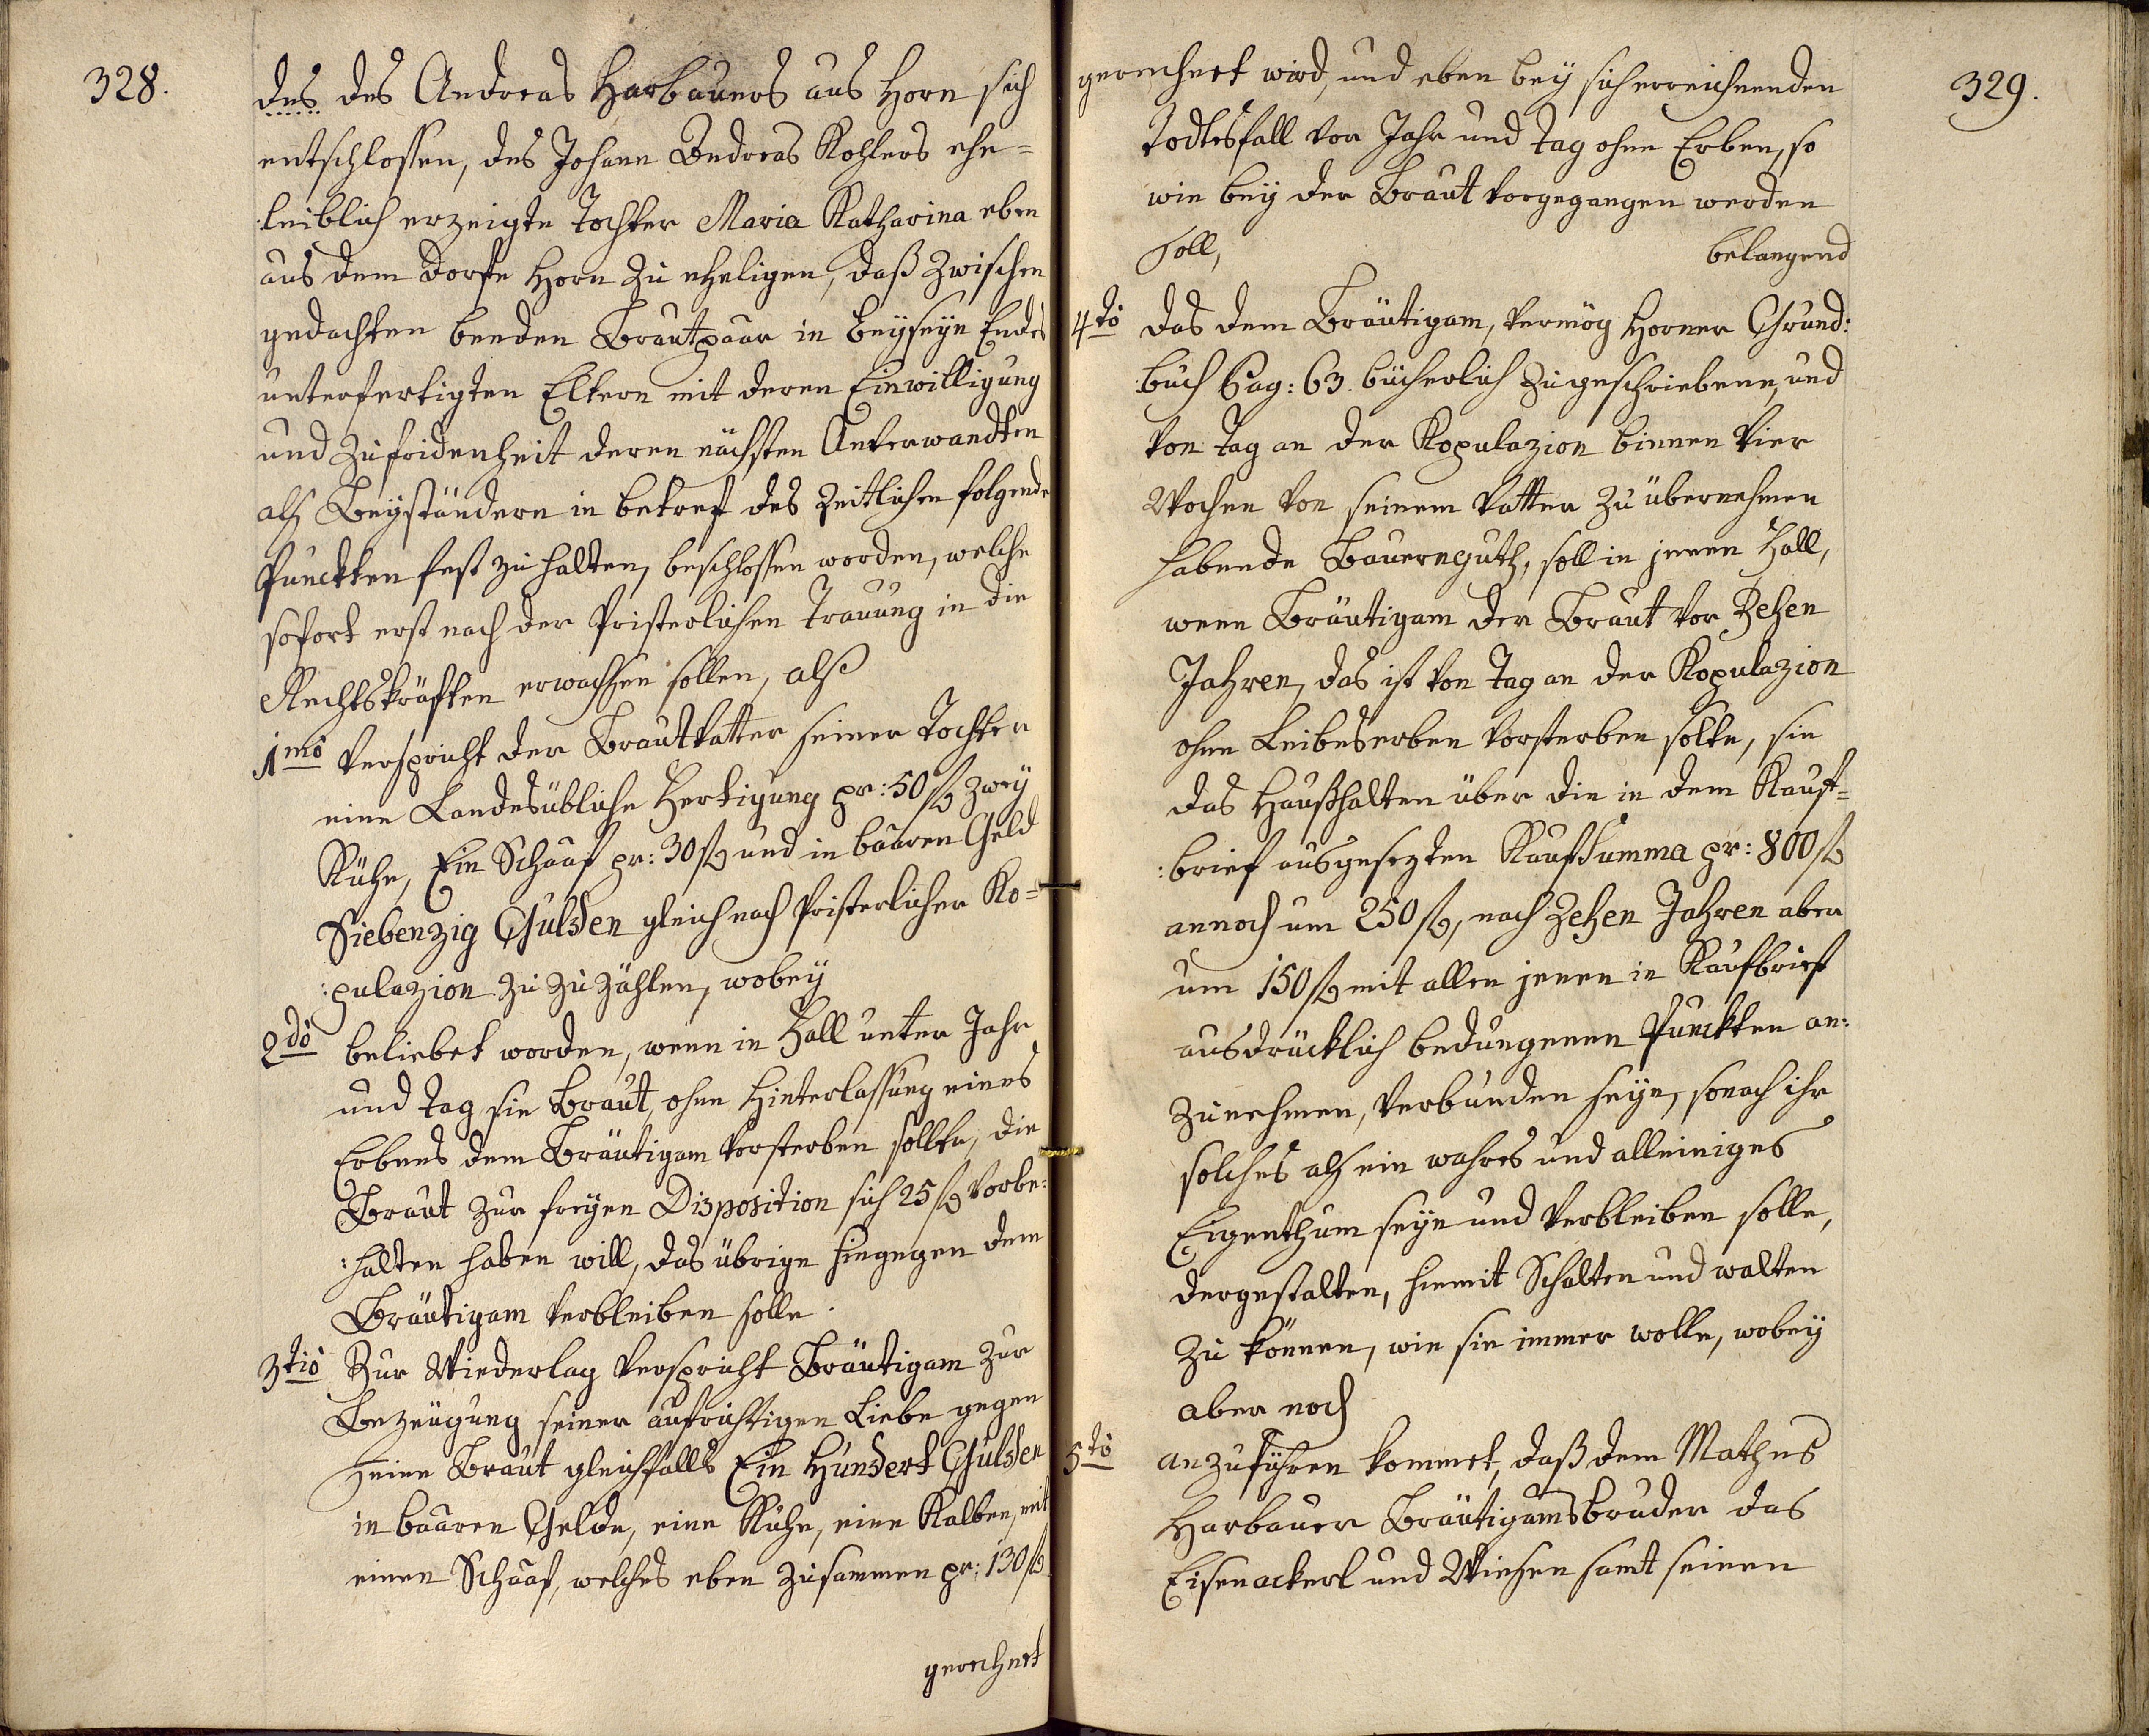 328.
des des Andreas Harbauers aus Horn sich
entschlossen, des Johann Andreas Kohlers ehe=
:leiblich erzeigte Tochter Maria Katharina eben
aus dem Dorfe Horn zu eheligen, daß zwischen
gedachten beeden Brautpaar in Beyseyn Endes
unterfertigten Eltern mit deren Einwilligung
und Zufridenheit deren nächsten Anverwandten
als Beyständern in betref des Zeitlichen folgende
Punckten fest zu halten, beschlossen worden, welche
sofort erst nach der Pristerlichen Trauung in die
Rechtskräften erwachsen sollen, als
1mo Verspricht der Brautvatter seiner Tochter
eine Landesübliche Fertigung pr: 50 f zwey
Kühe, Ein Schaaf pr: 30 f und in baaren Geld
Siebenzig Gulden gleich nach Pristerlicher Ko=
:pulazion zu zu zählen, wobey
2do beliebet worden, wenn in Fall unter Jahr
und Tag sie Braut, ohne Hinterlassung eines
Erbens dem Bräutigam vorsterben sollte, die
Braut zur freyen Disposition sich 25 f vorbe:
:halten haben will, das übrige hingegen dem
Bräutigam verbleiben solle.
3tio Zur Wiederlag verspricht Bräutigam zur
Bezeugung seiner aufrichtigen Liebe gegen
seine Braut gleichfalls Ein Hundert Gulden
in baaren Gelde, eine Kühe, eine Kalben, mit
einen Schaaf, welches eben zusammen pr: 130 f
gerechnet
329.
gerechnet wird, und eben bey sich erreichnenden
Todtesfall vor Jahr und Tag ohne Erben, so
wie bey der Braut vorgegangen werden
soll, belangend
4to das dem Bräutigam, vermög Horner Grund:
:buch Pag: 63. bücherlich zugeschriebene, und
von Tag an der Kopulazion binnen Vier
Wochen von seinem Vatter zu übernehmen
habende Bauernguth, soll in jenen Fall,
wenn Bräutigam der Braut vor Zehen
Jahren, das ist von Tag an der Kopulazion
ohne Leibeserben vorsterben solte, sie
das Haußhalten über die in dem Kauf=
:brief ausgesezten Kaufsumma pr: 800 f
annoch um 250 f, nach Zehen Jahren aber
um 150 f mit allen jenen in Kaufbrief
ausdrücklich bedungenen Punckten an:
zunehmen, verbunden seyn, sonach ihr
solches als ein wahres und alleiniges
Eigenthum seyn und verbleiben solle,
dergestalten, hiemit Schalten und walten
zu können, wie sie immer wolle, wobey
aber noch
5to anzuführen kommet, daß dem Mathes
Harbauer Bräutigamsbruder das
Eisenackerl und Wiesen samt seinen